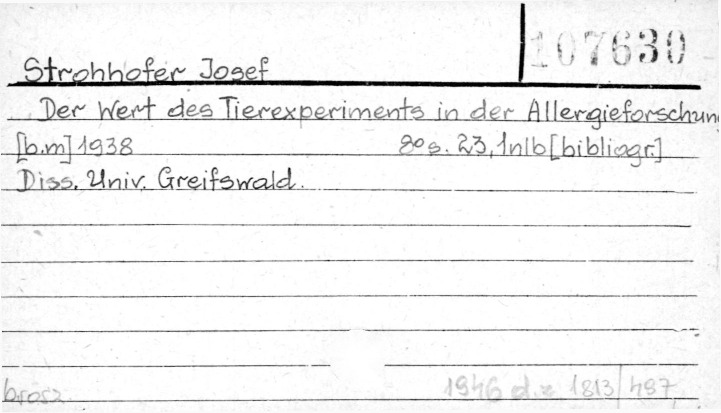 107630
Strohhofer Josef
Der Wert des Tierexperiments in der Allergieforschun
[b.m] 1938 8° s. 23, 1nlb [bibliogr.]
Diss. Univ. Greifswald.
brosz. 1946 d.z 1813/497